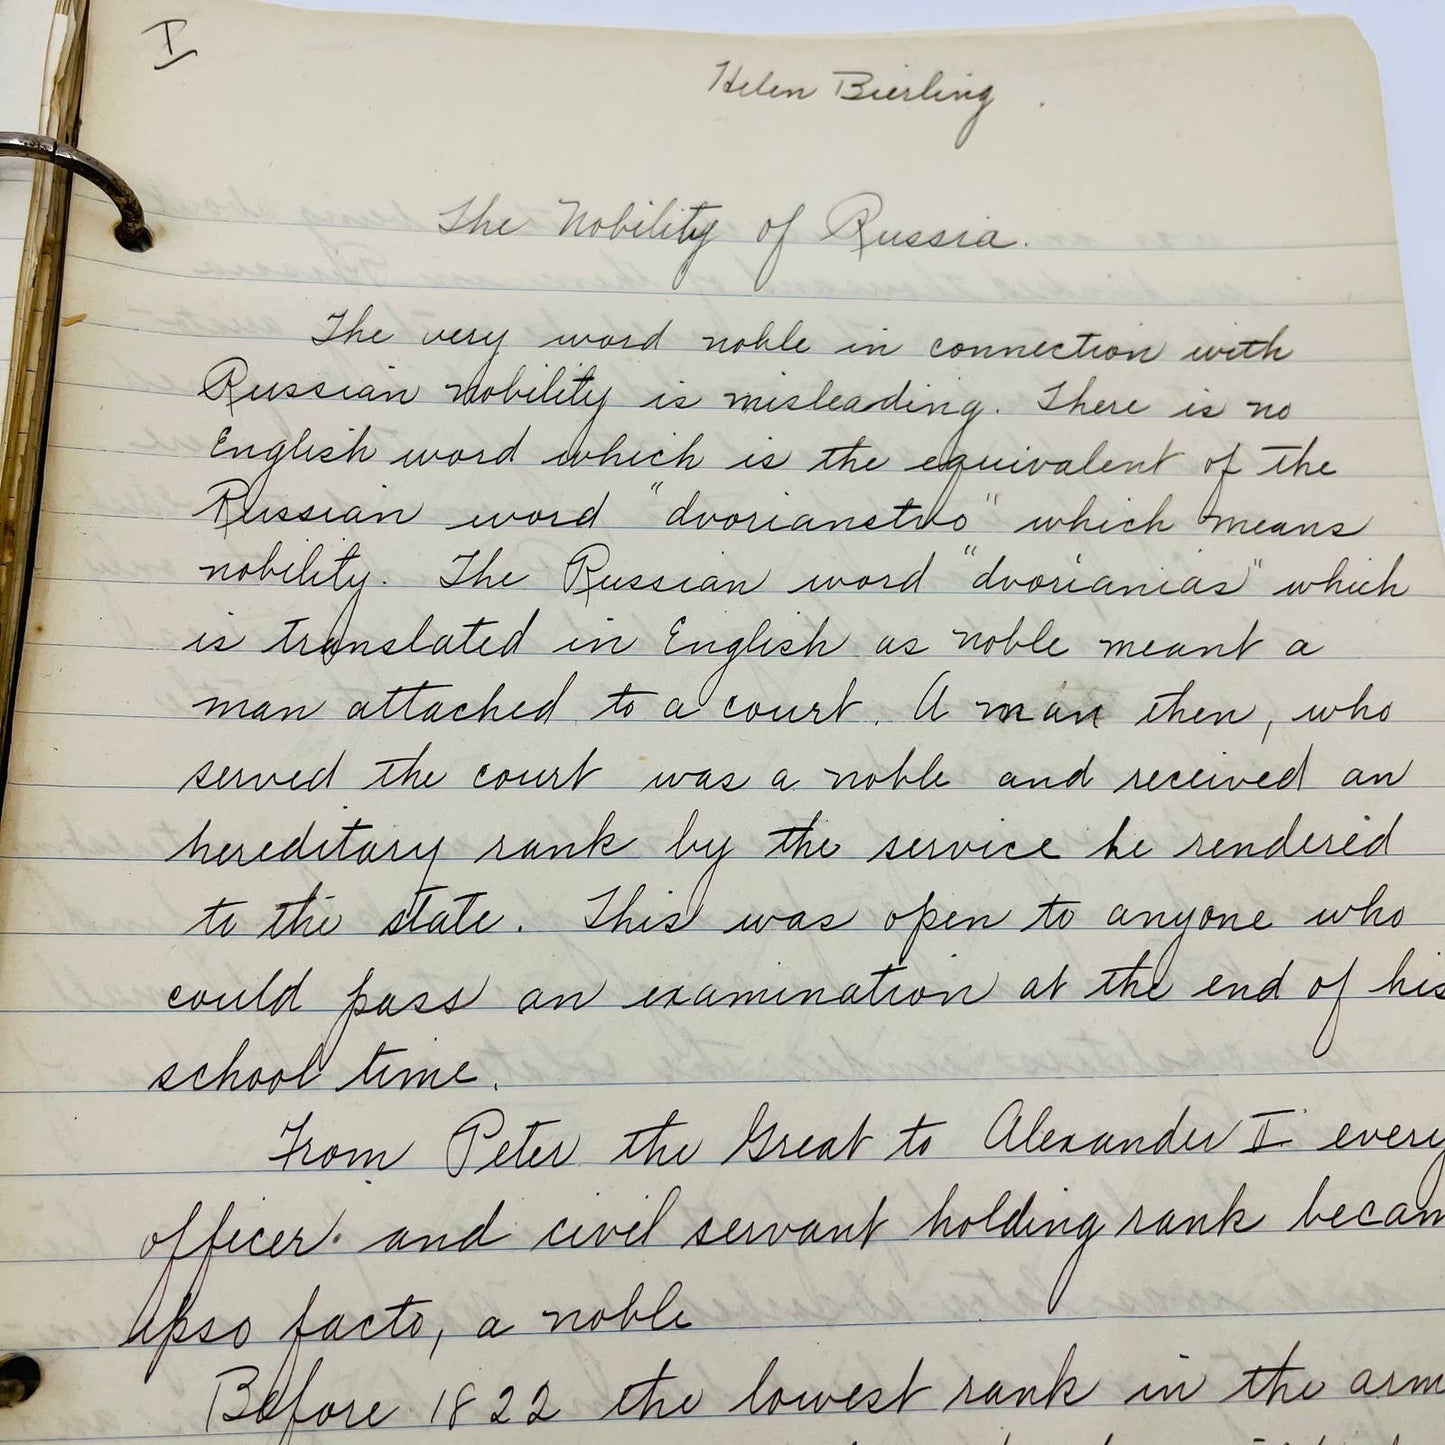 I
Helen Bierling
The Nobility of Russia.
The very word noble in connection with
Russian nobility is misleading. There is no
English word which is the equivalent of the
Russian word "dvorianstvo" which means
nobility. The Russian word "dvorianias" which
is translated in English as noble meant a
man attached to a court. A man then, who
served the court was a noble and received an
hereditary rank by the service he rendered
to the state. This was open to anyone who
could pass an examination at the end of his
school time.
From Peter the Great to Alexander II every
officer and civil servant holding rank becam
ipso facto, a noble
Before 1822 the lowest rank in the arm